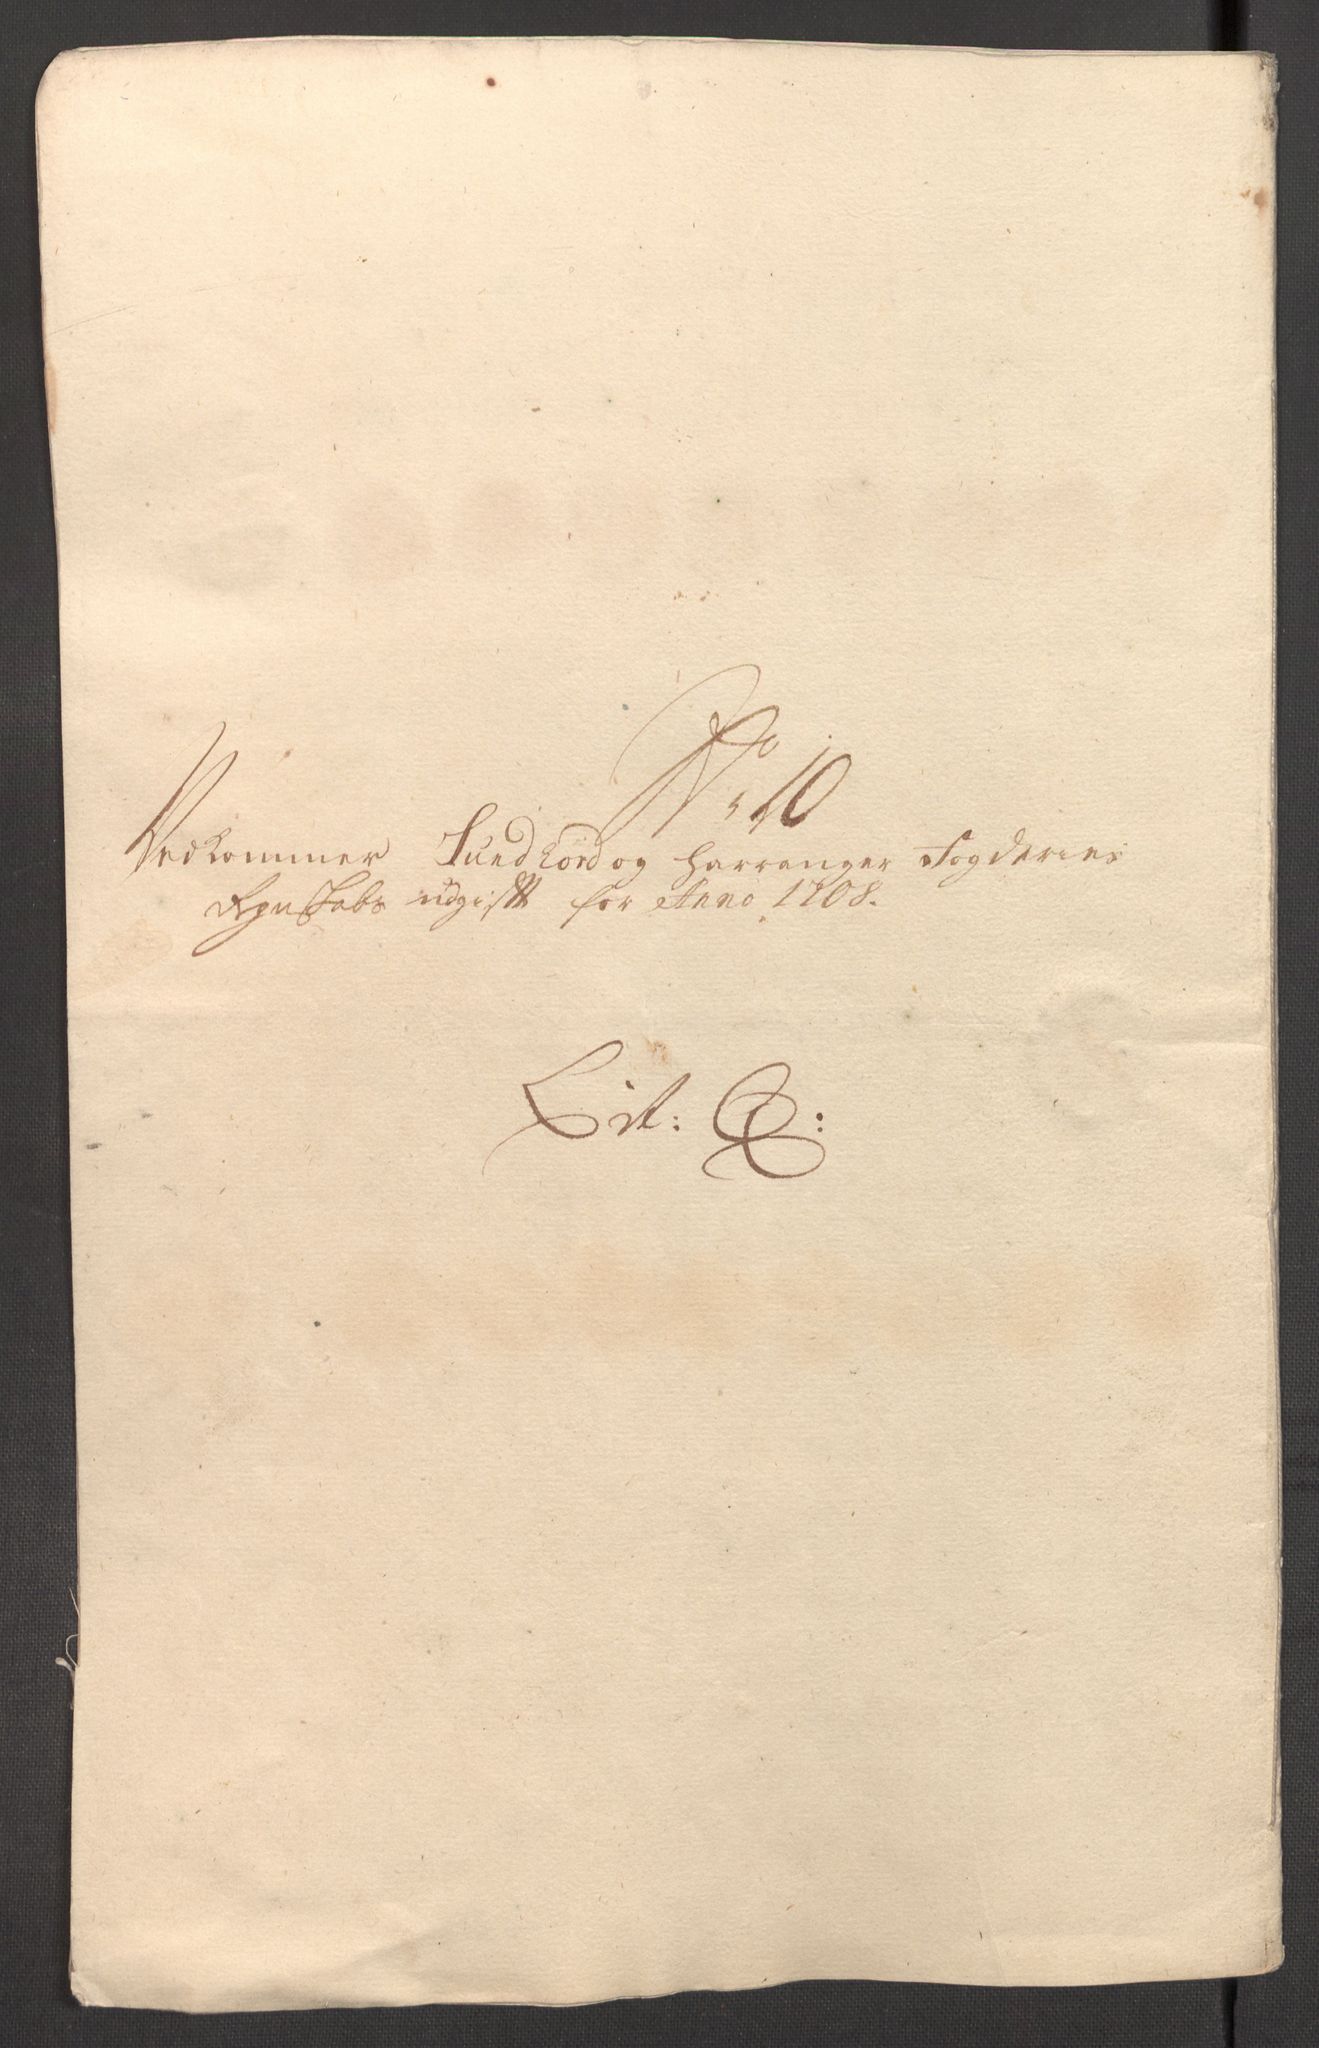 No: 10
Vedkommer Sundhord og Harranger Fogderies
Rgnskabs udgifft for Anno 1708.
Lit: Q: